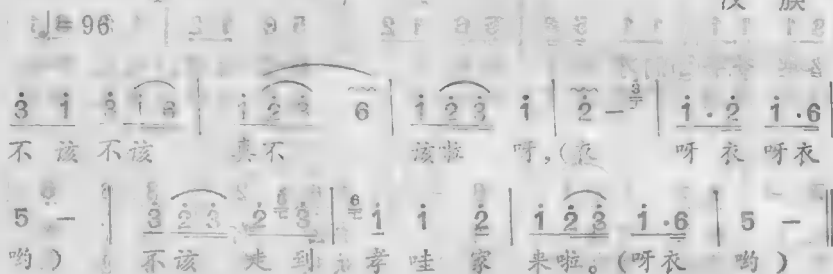 汉 族
♩= 96
3̇ 1̇ 3̇ 1̇ 6 | 1̇ 2̇ 3̇ 6 | 1̇ 2̇ 3̇ 1̇ | 2̇ - 3̇ | 1̇ . 2̇ 1̇ . 6 |
不 该 不 该 真 不 该 啦 呀，（衣 呀 衣 呀 衣
5 - | 3̇ 2̇ 3̇ 2̇ 6 3̇ | 6 1̇ 1̇ 2̇ | 1̇ 2̇ 3̇ 1̇ . 6 | 5 - ‖
哟 ） 不 该 走 到 孝 哇 家 来 啦。（呀 衣 哟 ）